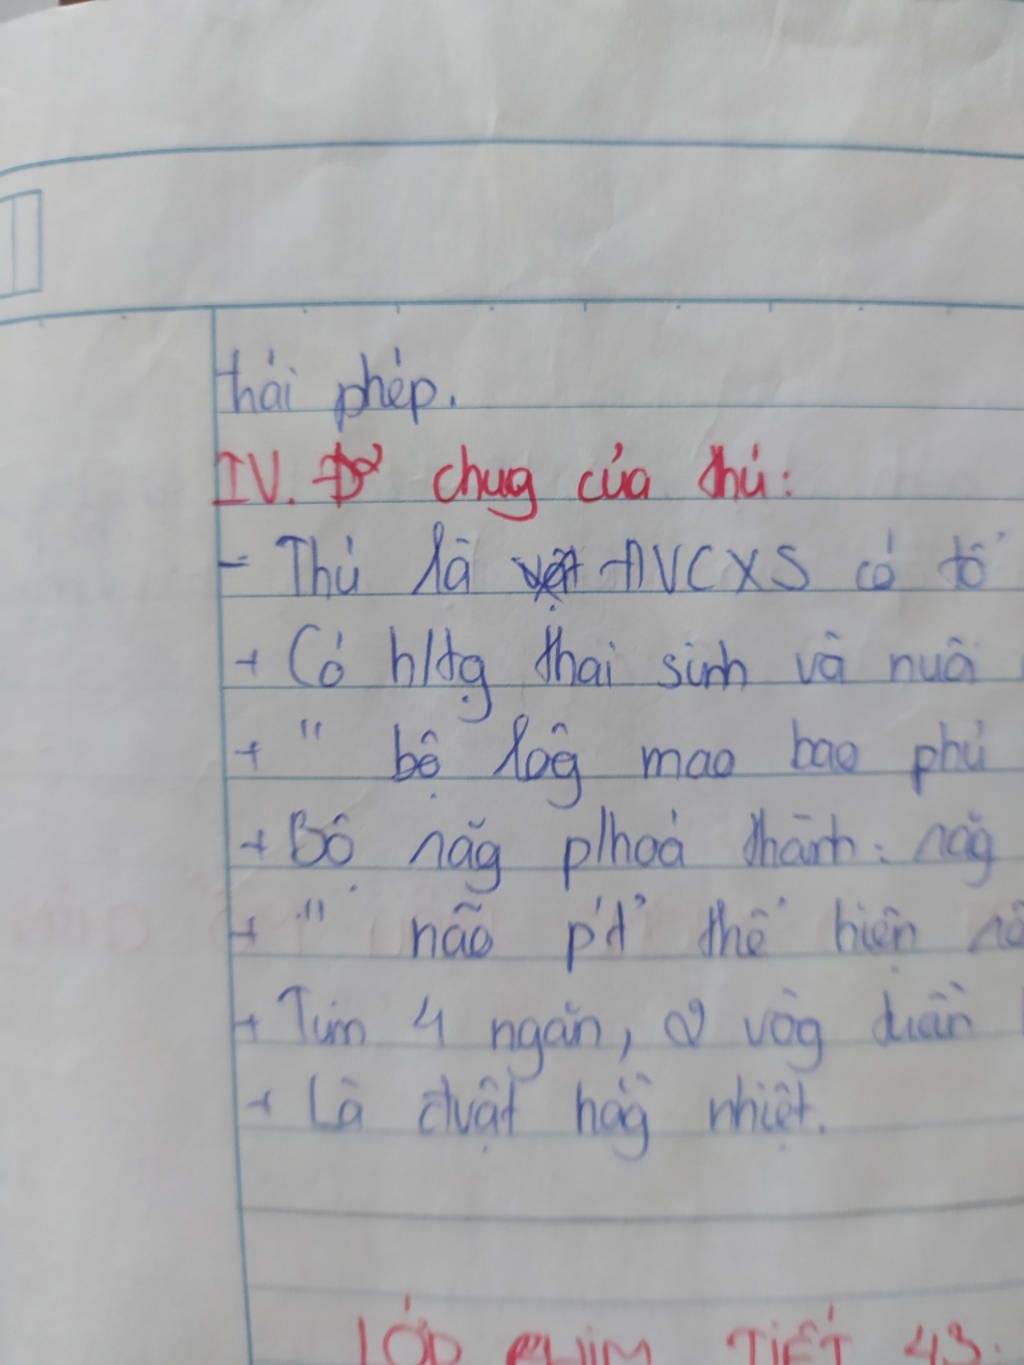 hái phép.
IV. Đ² chug của thú:
- Thú là vật ĐVCXS có tổ
+ Có h/tg thai sinh và nuôi
+ " bộ lôg mao bao phủ
+ Bộ răg p/hoá thành: răg
+ " não p'd' thể hiện rõ
+ Tim 4 ngăn, 2 vòg tuần
+ Là đvật hằg nhiệt.
LỚP CHIM TIẾT 43: